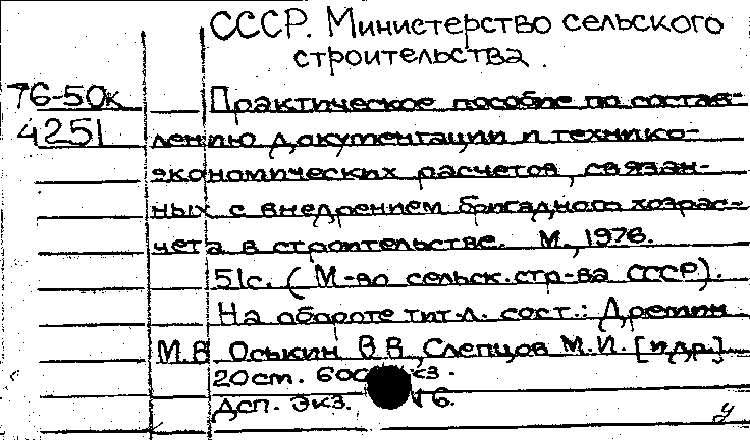 СССР. Министерство сельского
строительства.
76-50к
4251
Практическое пособие по состав-
лению документации и технико-
экономических расчетов, связан-
ных с внедрением бригадного хозрас-
чета в строительстве. М., 1976.
51с. (М-во сельск.стр-ва СССР).
На обороте тит.л. сост.: Дремин
М.В Оськин В.В, Слепцов М.И. [и др.]
20см.
Дсп. Экз.